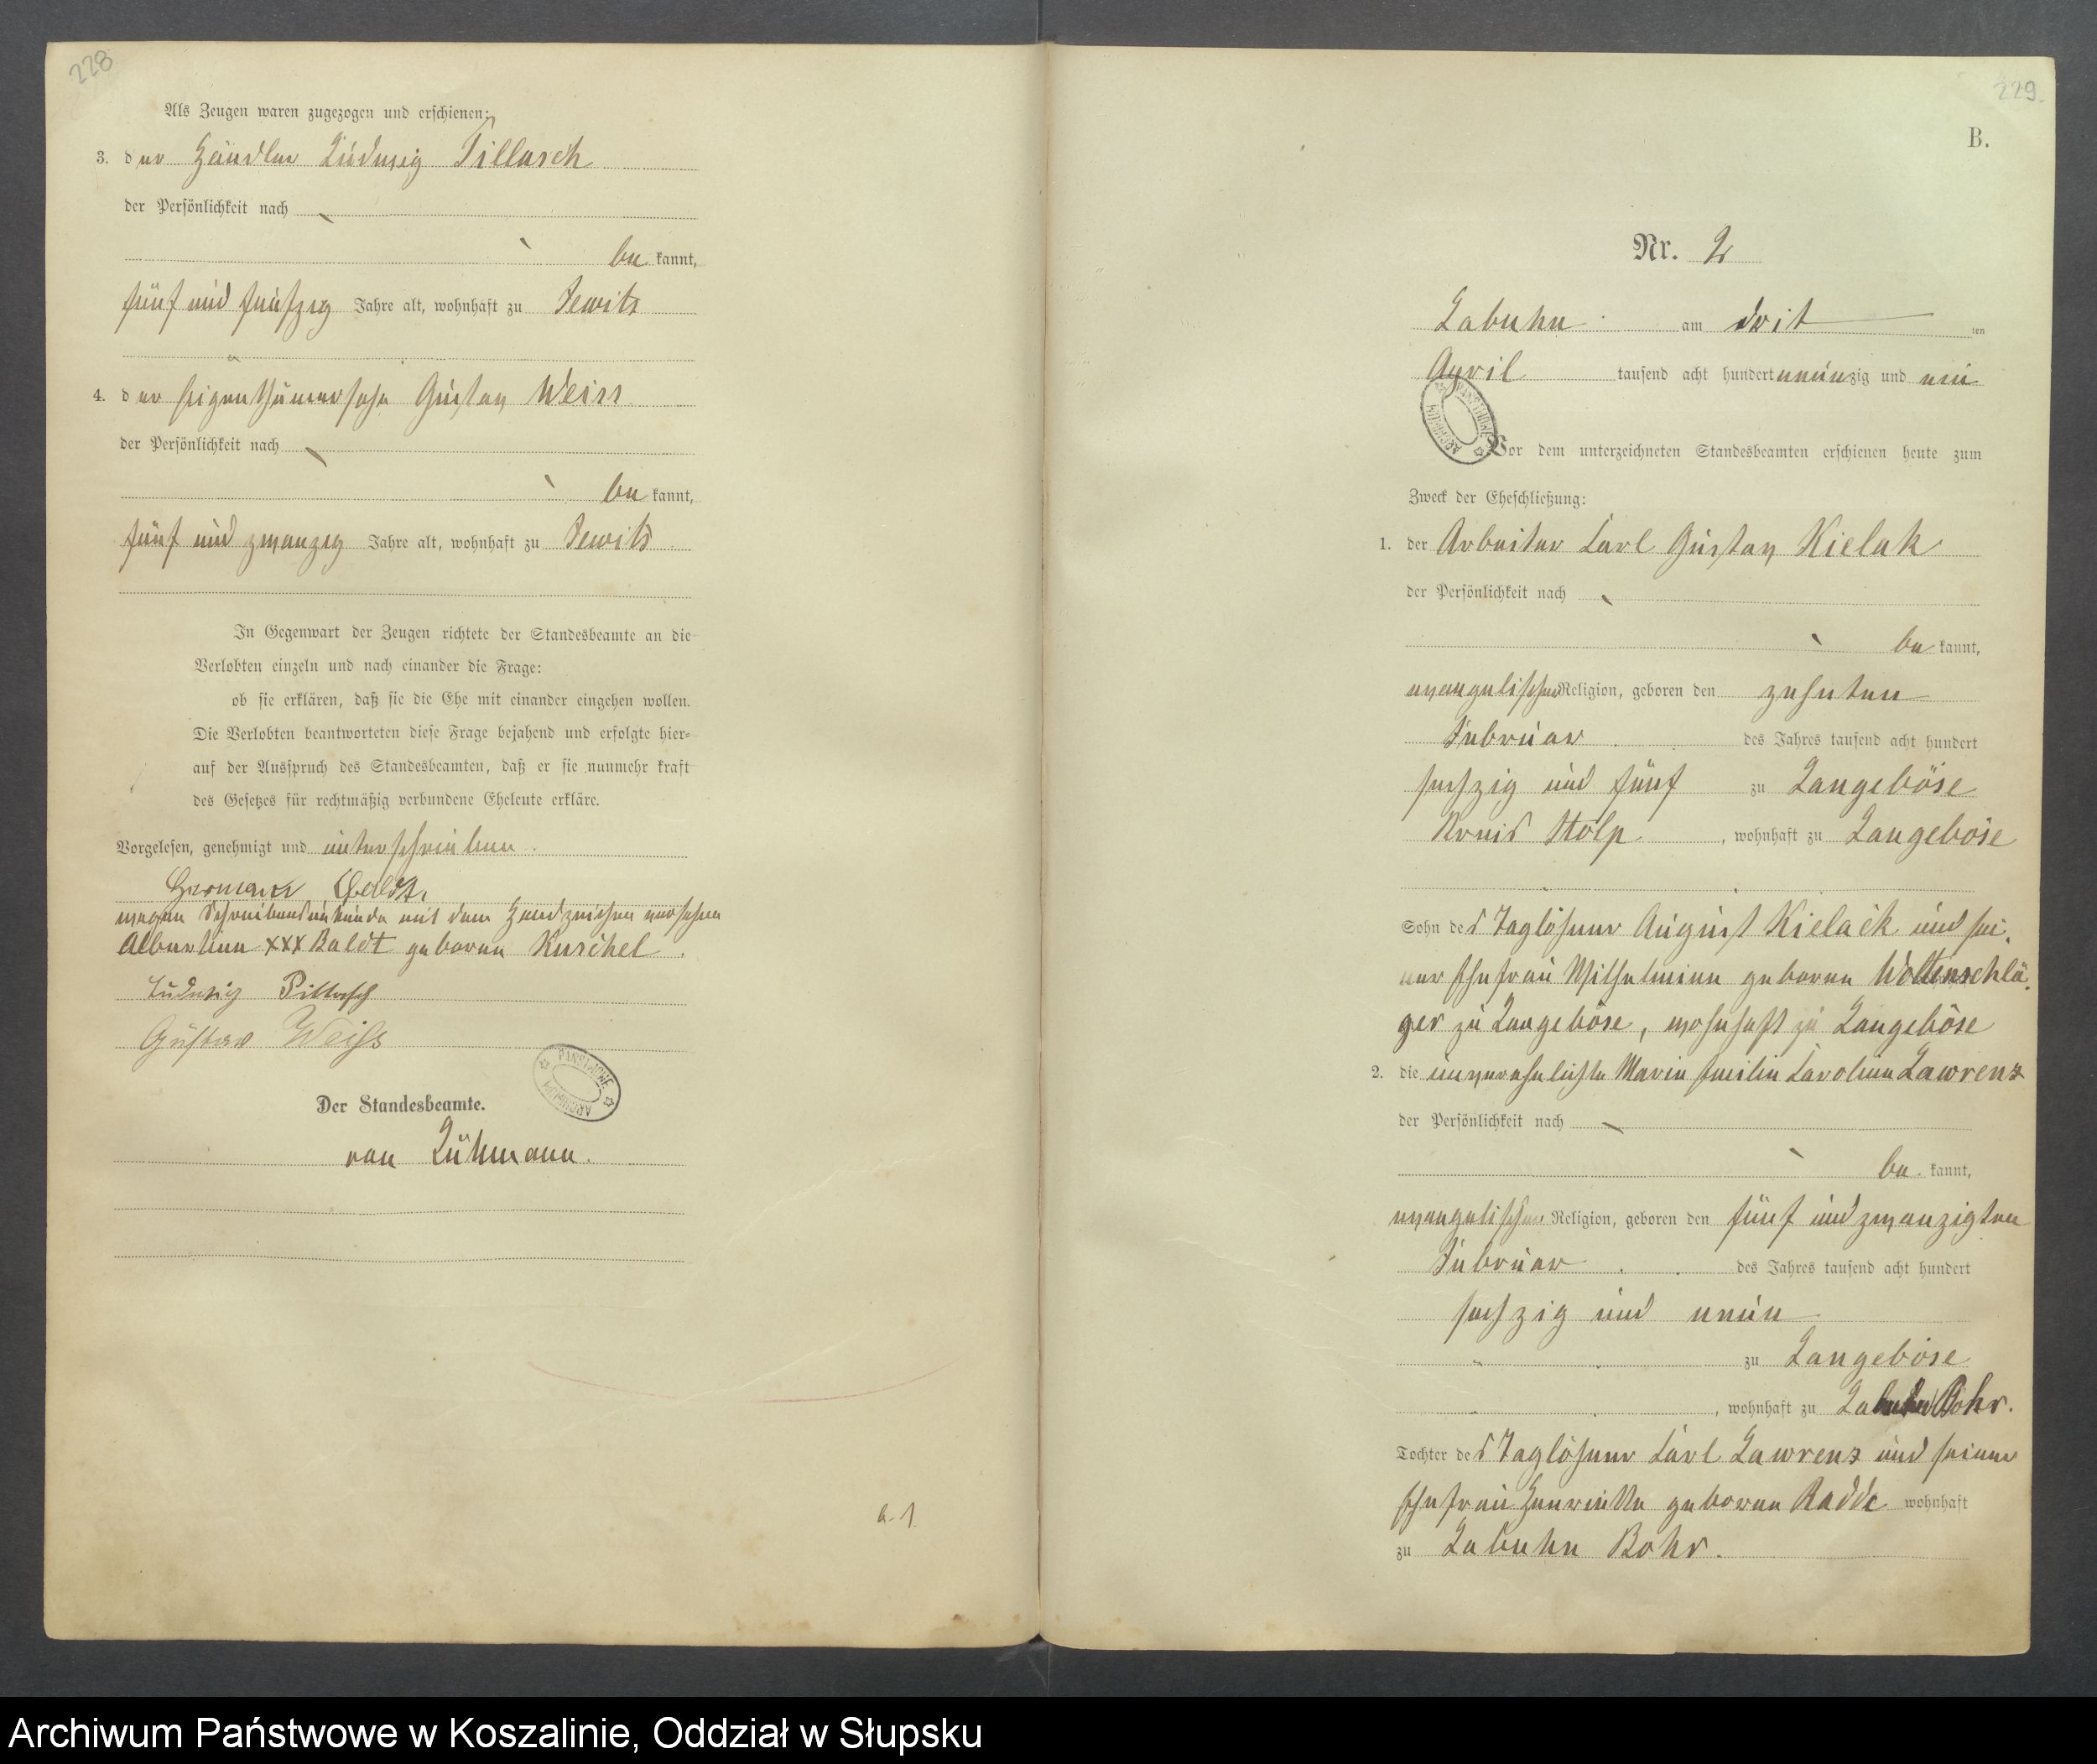 228
Als Zeugen waren zugezogen und erschienen:
3. der Händler Ludwig Pillasch
der Persönlichkeit nach
bekannt,
fünf und fünfzig Jahre alt, wohnhaft zu Jewitz
4. der Eigenthümersohn Gustav Weiss
der Persönlichkeit nach
bekannt,
fünf und zwanzig Jahre alt, wohnhaft zu Jewitz
In Gegenwart der Zeugen richtete der Standesbeamte an die
Verlobten einzeln und nach einander die Frage:
ob sie erklären, daß sie die Ehe mit einander eingehen wollen.
Die Verlobten beantworteten diese Frage bejahend und erfolgte hier-
auf der Ausspruch des Standesbeamten, daß er sie nunmehr kraft
des Gesetzes für rechtmäßig verbundene Eheleute erkläre.
Vorgelesen, genehmigt und unterschrieben.
Hermann
wegen Schreibensunkunde mit dem Handzeichen versehen
Albertine XXX Baldt geborene Kuschel.
Ludwig Pillasch
Gustav Weiss
PAŃSTWOWE ARCHIWUM
Der Standesbeamte.
von Lühmann.
a. 1.
229.
B.
Nr. 2
Labuhn am dritten
April tausend acht hundert neunzig und ein
PAŃSTWOWE ARCHIWUM
Vor dem unterzeichneten Standesbeamten erschienen heute zum
Zweck der Eheschließung:
1. der Arbeiter Carl Gustav Kielak
der Persönlichkeit nach
bekannt,
evangelischer Religion, geboren den zehnten
Februar des Jahres tausend acht hundert
sechzig und fünf zu Langeböse
Kreis Stolp, wohnhaft zu Langeböse
Sohn des Taglöhner August Kielack und sei-
ner Ehefrau Wilhelmine geborene Woltenschlä-
ger zu Langeböse, wohnhaft zu Langeböse
2. die unverehelichte Marie Emilie Caroline Lawrenz
der Persönlichkeit nach
bekannt,
evangelischer Religion, geboren den fünf und zwanzigten
Februar des Jahres tausend acht hundert
sechzig und neun
zu Langeböse
, wohnhaft zu Labuhn Bohr.
Tochter des Taglöhner Carl Lawrenz und seiner
Ehefrau Henriette geborene Radde wohnhaft
zu Labuhn Bohr.
Archiwum Państwowe w Koszalinie, Oddział w Słupsku